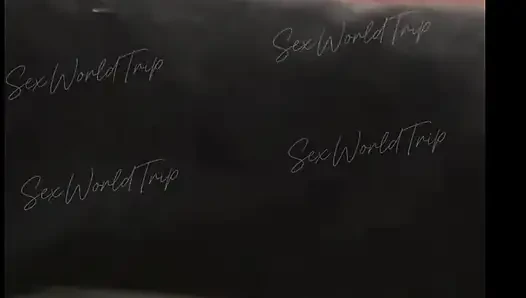 SexWorldTrip
SexWorldTrip
SexWorldTrip
SexWorldTrip